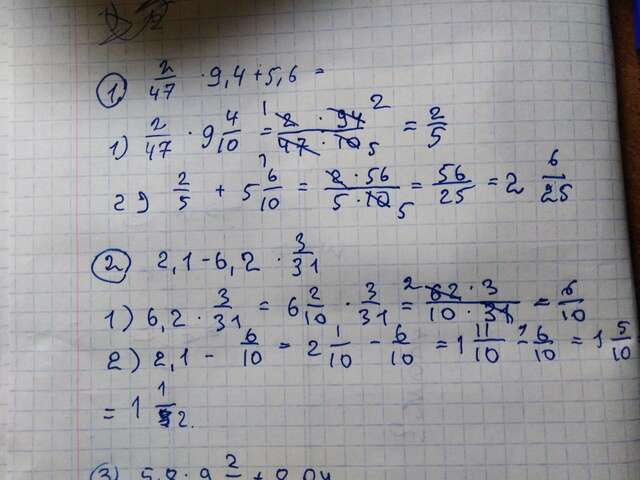 ① 2/47 · 9,4 + 5,6 =
1) 2/47 · 9 4/10 = (2 · 94)/(47 · 10) = 2/5
2) 2/5 + 5 6/10 = (2 · 56)/(5 · 10) = 56/25 = 2 6/25
② 2,1 - 6,2 · 3/31
1) 6,2 · 3/31 = 6 2/10 · 3/31 = (62 · 3)/(10 · 31) = 6/10
2) 2,1 - 6/10 = 2 1/10 - 6/10 = 1 11/10 - 6/10 = 1 5/10
= 1 1/2.